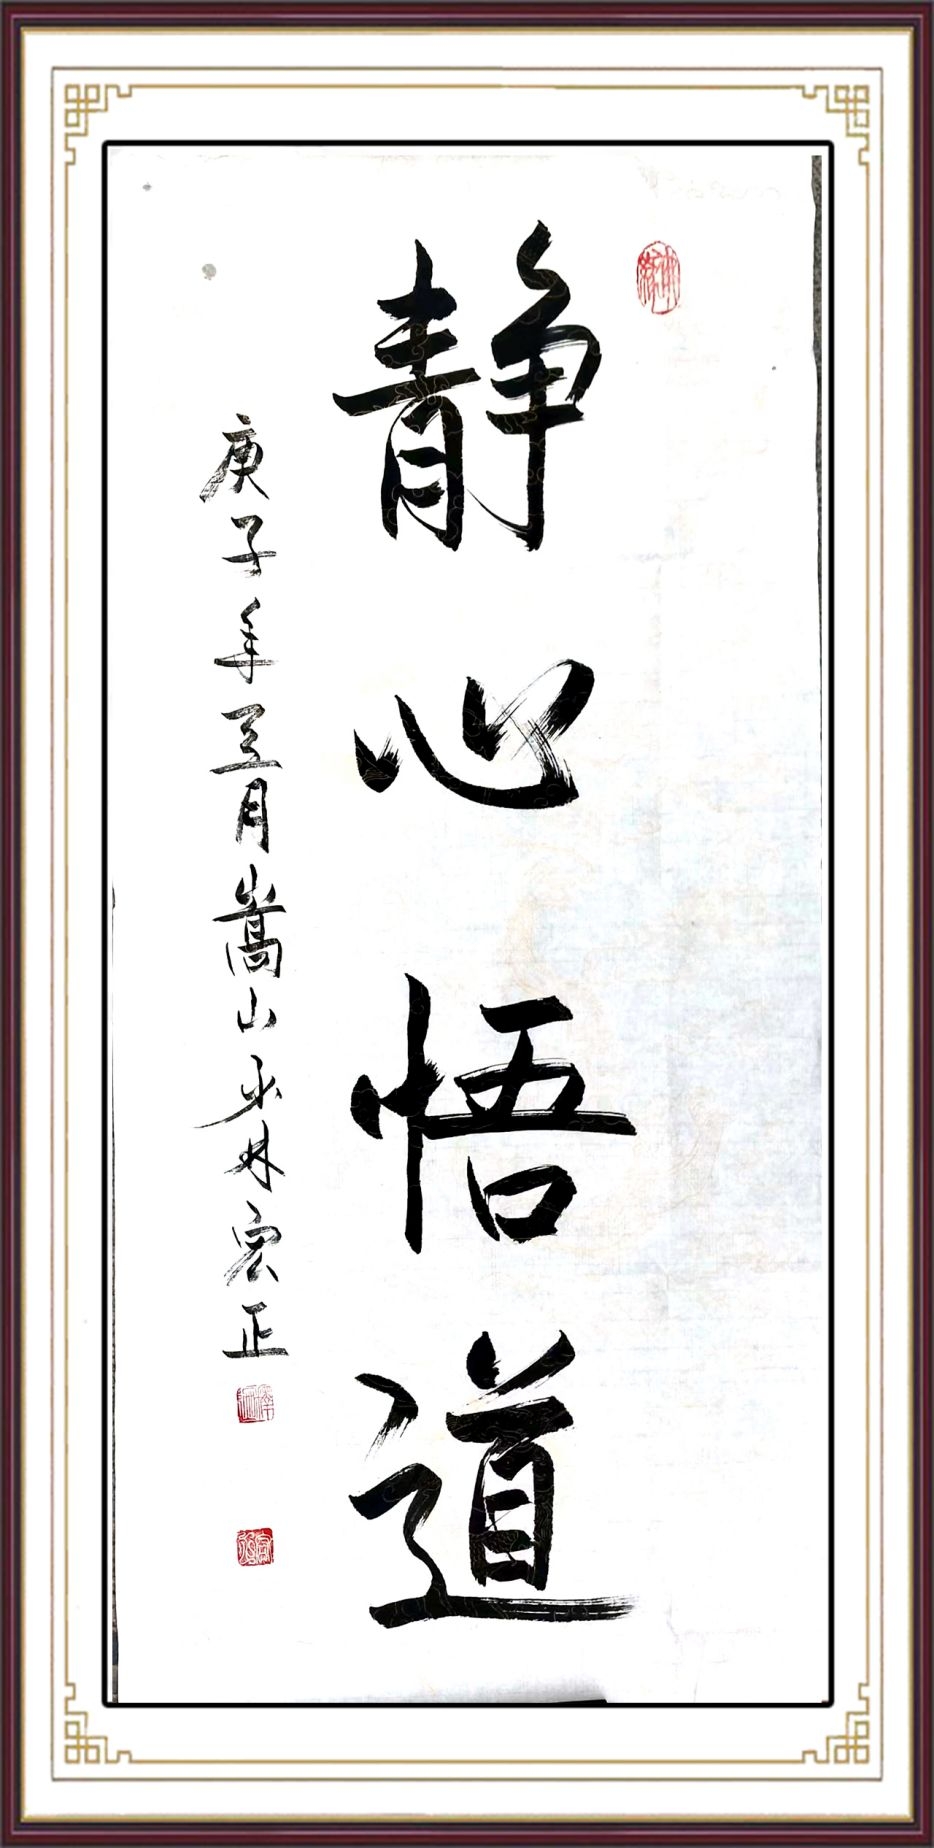 静心悟道
庚子年三月嵩山少林宏正